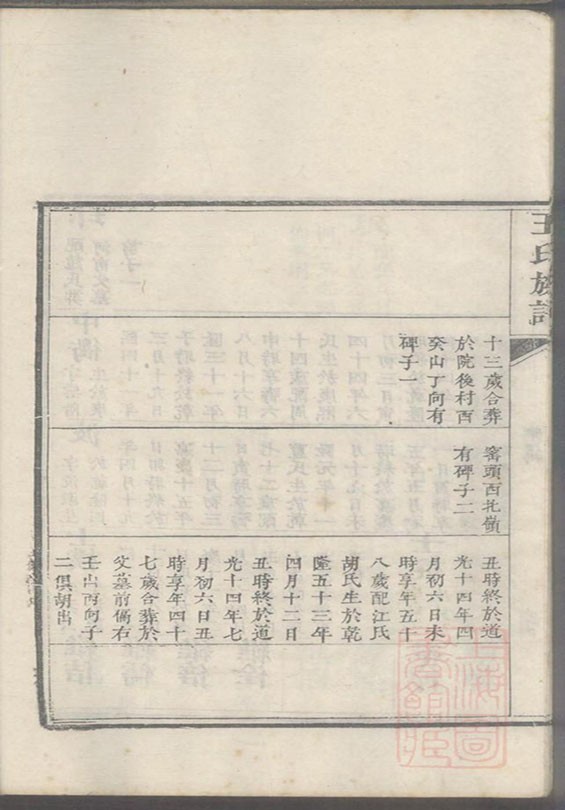 王氏族譜
十三歲合葬
於院後村西
癸山丁向有
碑子一
窰頭西北嶺
有碑子二
丑時終於道
光十四年四
月初六日未
時享年五十
八歲配江氏
胡氏生於乾
隆五十三年
四月十二日
丑時終於道
光十四年七
月初六日丑
時享年四十
七歲合葬於
父墓前偏右
壬山丙向子
二俱胡出
上海圖
書館藏